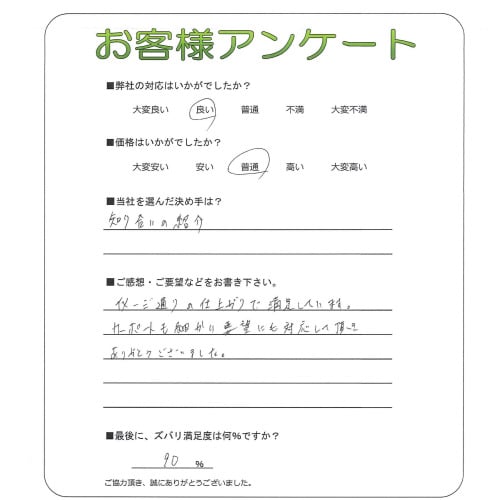 お客様アンケート
■弊社の対応はいかがでしたか?
大変良い 良い 普通 不満 大変不満
■価格はいかがでしたか?
大変安い 安い 普通 高い 大変高い
■当社を選んだ決め手は?
知り合いの紹介
■ご感想・ご要望などをお書き下さい。
イメージ通りの仕上がりで満足しています。
サポートも細かい要望にも対応して頂き
ありがとうございました。
■最後に、ズバリ満足度は何%ですか?
90 %
ご協力頂き、誠にありがとうございました。